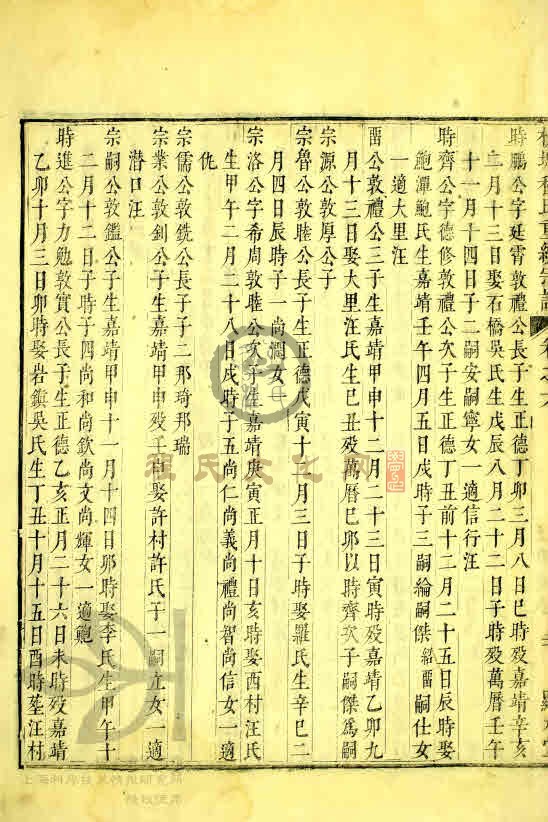 時鵬公字廷霄敦禮公長子生正德丁卯三月八日巳時歿嘉靖辛亥
三月十三日娶石橋吳氏生戊辰八月二十二日子時歿萬曆壬午
十一月十四日子二嗣安嗣寧女一適信行汪
時齊公字德修敦禮公次子生正德丁丑前十二月二十五日辰時娶
鮑潭鮑氏生嘉靖壬午四月五日戌時子三嗣綸嗣傑紹畱嗣仕女
一適大里汪
畱公敦禮公三子生嘉靖甲申十二月二十三日寅時歿嘉靖乙卯九
月十三日娶大里汪氏生己丑歿萬曆己卯以時齊次子嗣傑為嗣
宗源公敦厚公子
宗魯公敦睦公長子生正德戊寅十一月三日子時娶羅氏生辛巳二
月四日辰時子一尚潤女一
宗洛公字希周敦睦公次子生嘉靖庚寅正月十日亥時娶西村汪氏
生甲午二月二十八日戌時子五尚仁尚義尚禮尚智尚信女一適
仇
宗儒公敦銑公長子子二那琦邦瑞
宗業公敦釗公子生嘉靖甲申歿壬和娶許村許氏子一嗣立女一適
潛口汪
宗嗣公敦鑑公子生嘉靖甲申十一月十四日卯時娶李氏生甲午十
二月十二日子時子四尚和尚欽尚文尚輝女一適鮑
時進公字力勉敦實公長子生正德乙亥正月二十六日未時歿嘉靖
乙卯十月三日卯時娶岩鎮吳氏生丁丑十月十五日酉時葬汪村
程氏文化
上海科學技術情報研究所